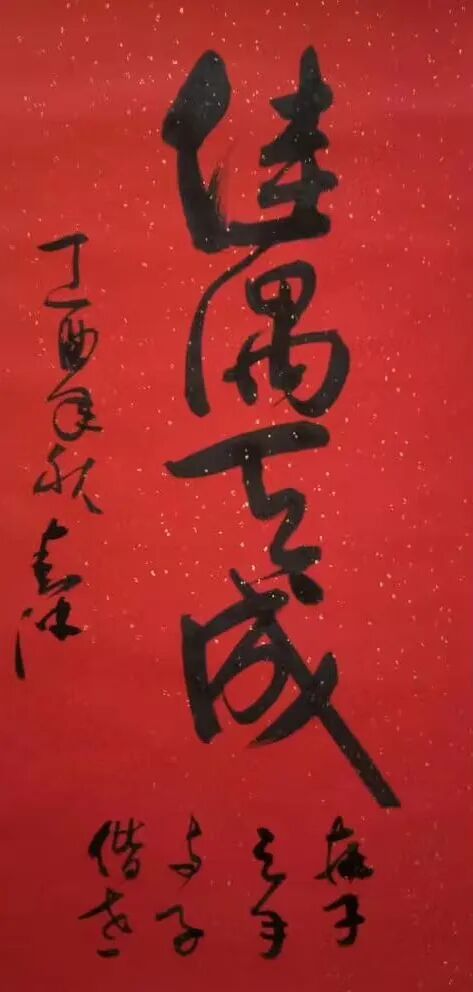 佳偶天成
执子
之手
与子
偕老
丁酉年秋